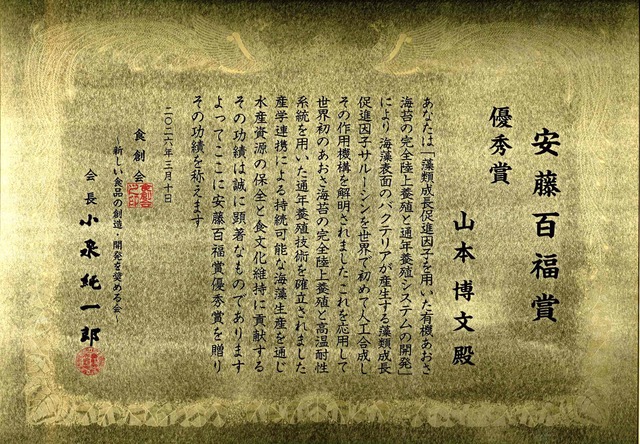 安藤百福賞
優秀賞
山本博文殿
あなたは「藻類成長促進因子を用いた有機あおさ
海苔の完全陸上養殖と通年養殖システムの開発」
により 海藻表面のバクテリアが産生する藻類成長
促進因子サルーシンを世界で初めて人工合成し
その作用機構を解明されました これを応用して
世界初のあおさ海苔の完全陸上養殖と高温耐性
系統を用いた通年養殖技術を確立されました
産学連携による持続可能な海藻生産を通じ
水産資源の保全と食文化維持に貢献する
その功績は誠に顕著なものであります
よってここに安藤百福賞優秀賞を贈り
その功績を称えます
二〇二六年三月十日
食創会
新しい食品の創造・開発を奨める会
会長 小泉純一郎